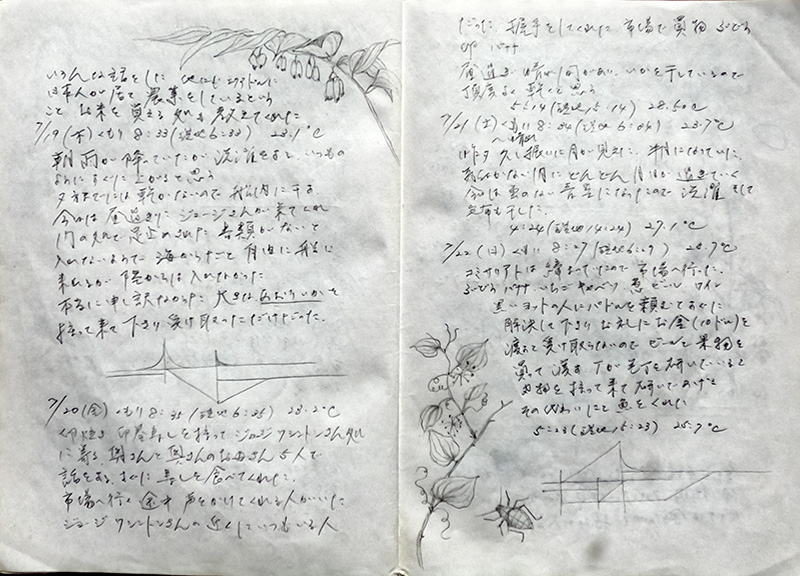 いろんな話をした 他にもエクアドルに
日本人が居て 農業をしているという
こと お米を買える処も教えてくれた
7/19(木)くもり 8:33(現地6:33) 23.1℃
朝 雨が降っていたが 洗濯をする いつもの
ようにすぐに上がると思う
夕方までには乾かないので 船内に干す
今日は昼過ぎに ジョージさんが来てくれ
門の処で足止めされた 書類がないと
入れないようで 海からだと自由に船に
来れるが 陸からは入れなかった
本当に申し訳なかった 大きなあおりいかを
持って来て下さり 受け取っただけだった。
7/20(金)くもり 8:35(現地6:35) 23.2℃
卵焼き 卵巻寿しを持って ジョージワシントンさん処
に寄る 奥さんと奥さんのお母さん 5人で
話をする すぐに寿しを食べてくれた。
市場へ行く途中 声をかけてくれる人がいた
ジョージワシントンさんの近くにいつもいる人
だった 握手をしてくれた 市場で買物 ぶどう
卵 バナナ
昼過ぎ 晴れ間があり いかを干しているので
丁度よく乾くと思う
5:14(現地15:14) 28.5℃
7/21(土)くもり 8:04(現地6:04) 23.7℃
〜晴れ
昨夕 久し振りに月が見えた 半月になっていた。
気付かない内にどんどん月日が過ぎていく
今日は雲のない青空になったので 洗濯をして
毛布も干した。
4:24(現地14:24) 27.1℃
7/22(日)くもり 8:07(現地6:07) 23.7℃
コミサリアトは締まっていたので 市場へ行った。
ぶどう バナナ いちご キャベツ 魚 ビール ワイン
黒いヨットの人にパドルを頼むとすぐに
解決して下さり お礼にお金(10ドル)を
渡すも受け取らないので ビールと果物を
買って渡す Tが包丁を研いでいると
刃物を持って来て 研いであげた
そのかわりにと魚をくれた
5:23(現地15:23) 25.7℃